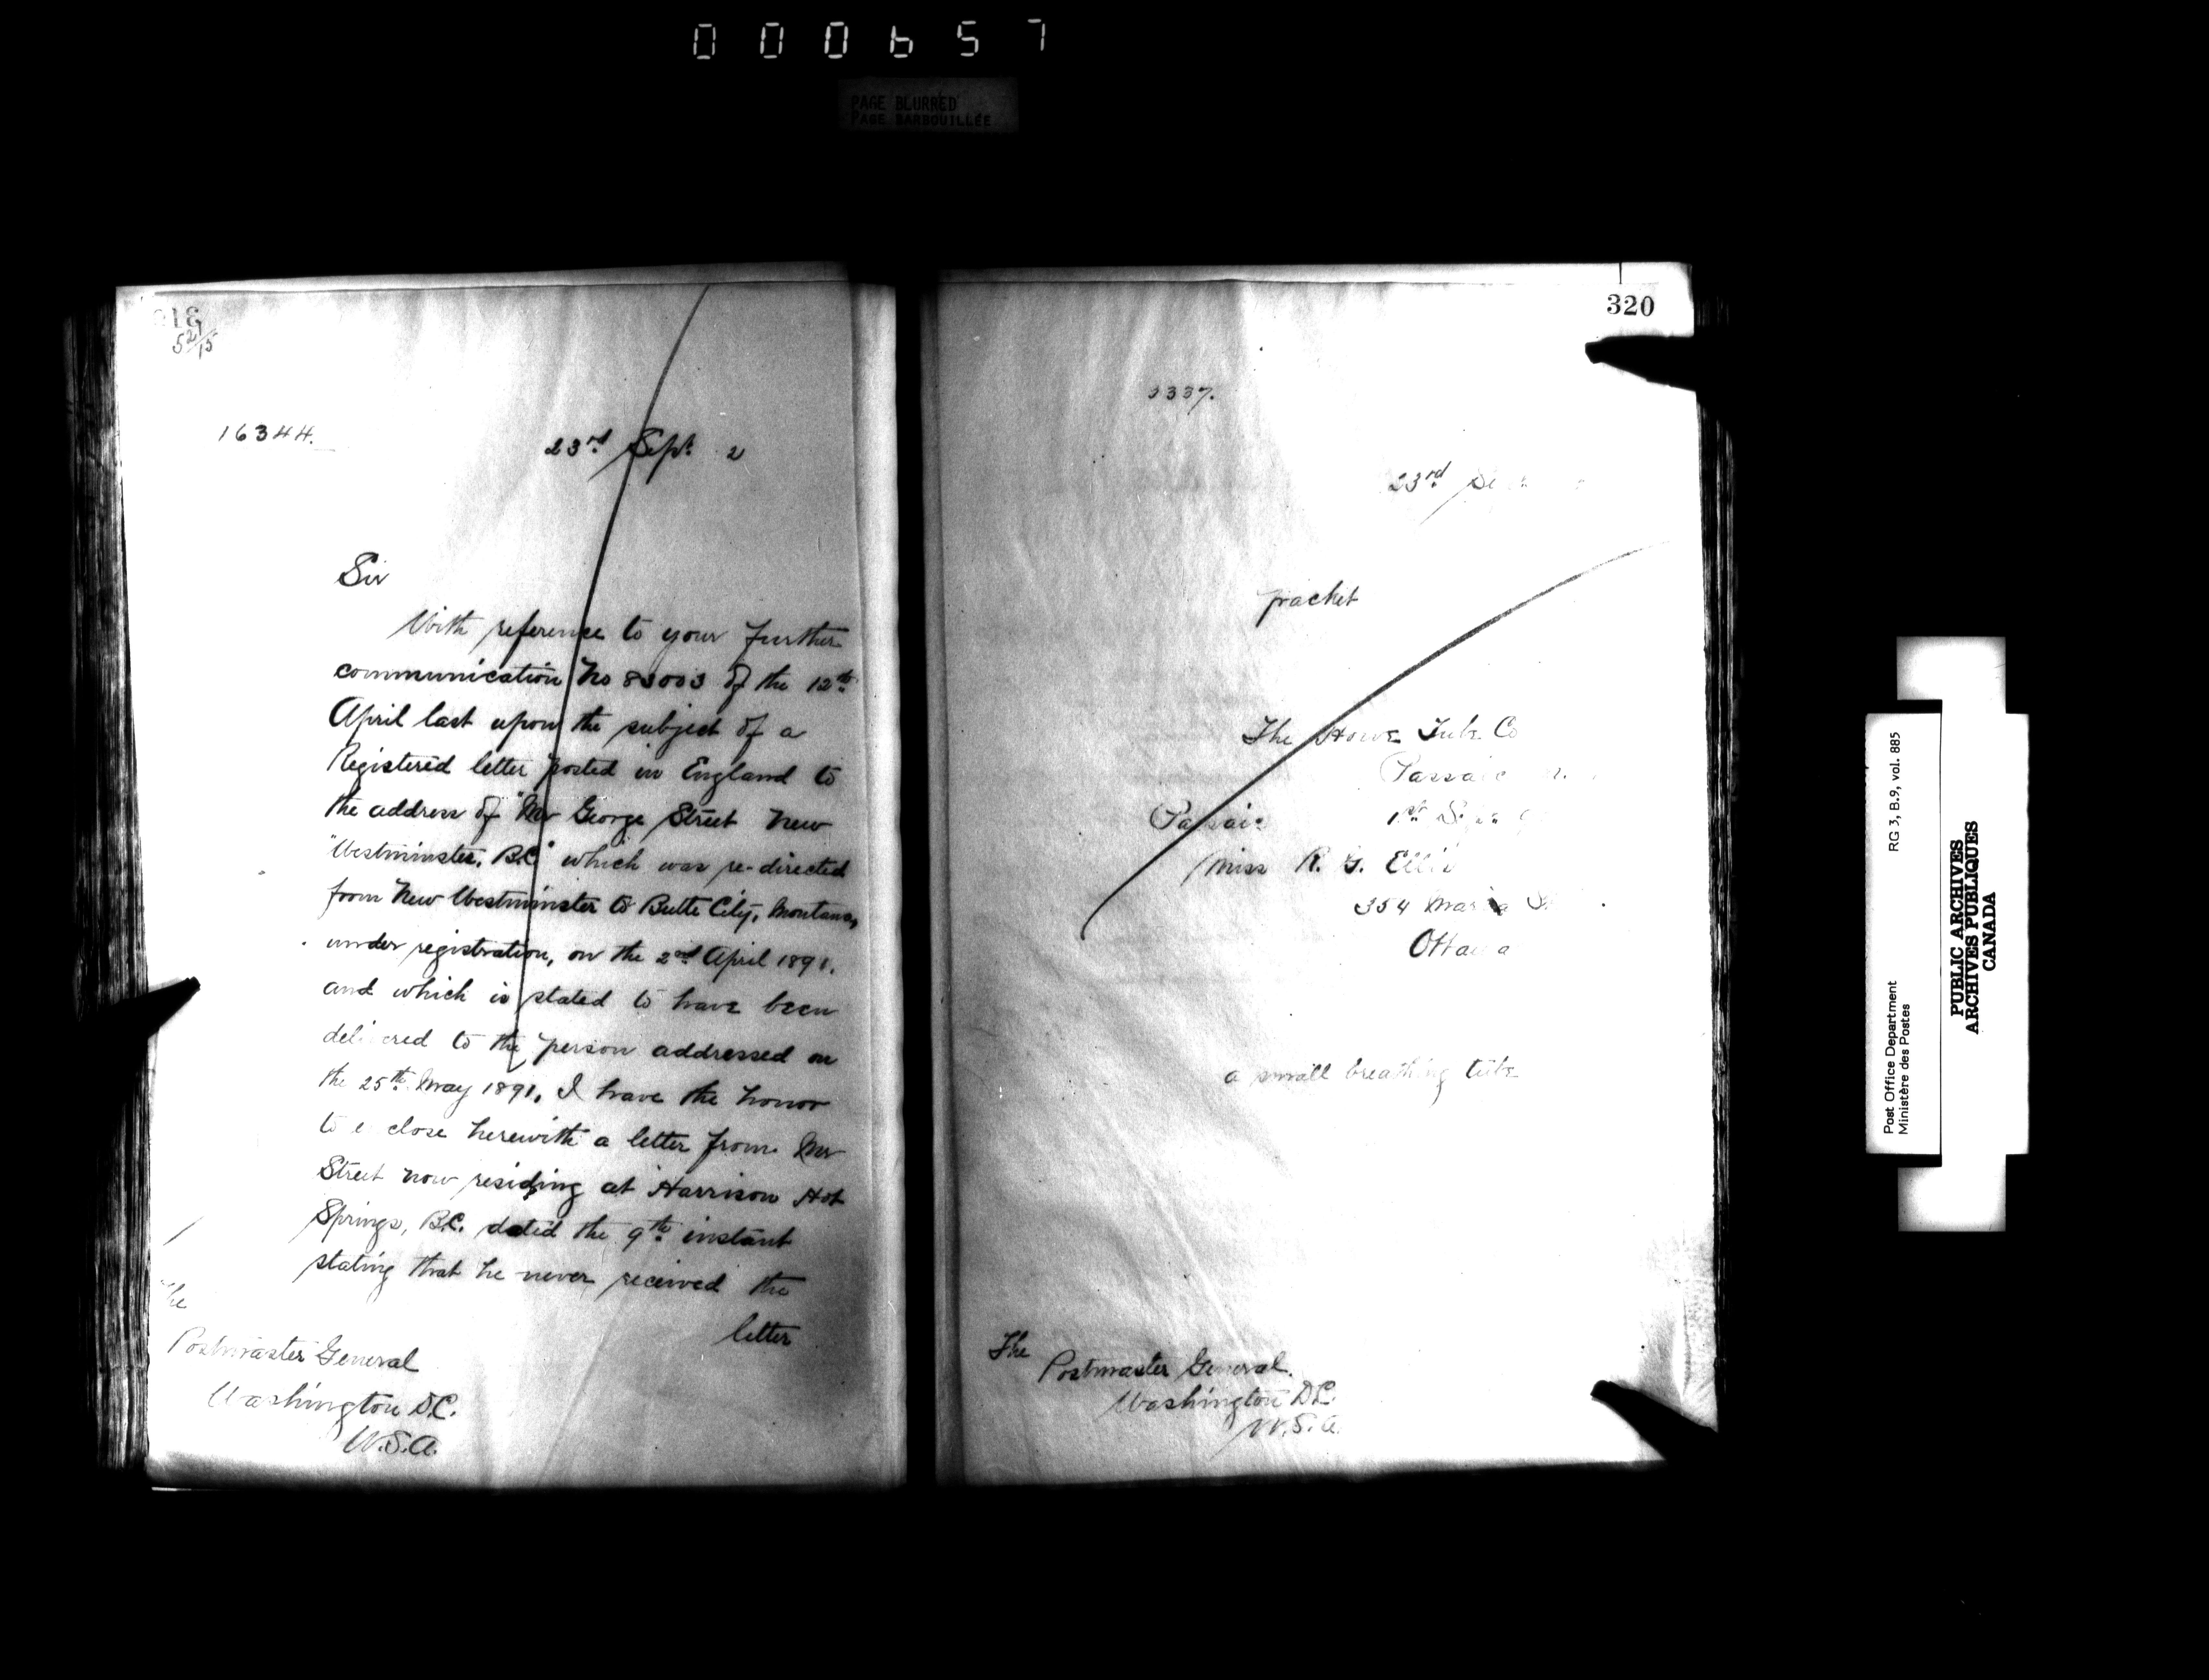 000657
PAGE BLURRED
PAGE BARBOUILLÉE
16344.
23rd Sept 2
Sir
With reference to your further
communication No 83003 of the 12th
April last upon the subject of a
Registered letter posted in England to
the address of "Mr George Street New
"Westminster, B.C." which was re-directed
from New Westminster to Butte City, Montana,
under registration, on the 2nd April 1891,
and which is stated to have been
delivered to the person addressed on
the 25th May 1891, I have the honor
to enclose herewith a letter from Mr
Street now residing at Harrison Hot
Springs, B.C. dated the 9th instant
stating that he never received the
letter
The
Postmaster General
Washington D.C.
U.S.A.
320
3337.
23rd
packet
The Howe Tube Co
Passaic
Passaic 1st
Miss R. G. Ellis
354 Maria St
Ottawa
a small breathing tube
The
Postmaster General.
Washington D.C.
U.S.A.
Post Office Department
Ministère des Postes
RG 3, B.9, vol. 885
PUBLIC ARCHIVES
ARCHIVES PUBLIQUES
CANADA